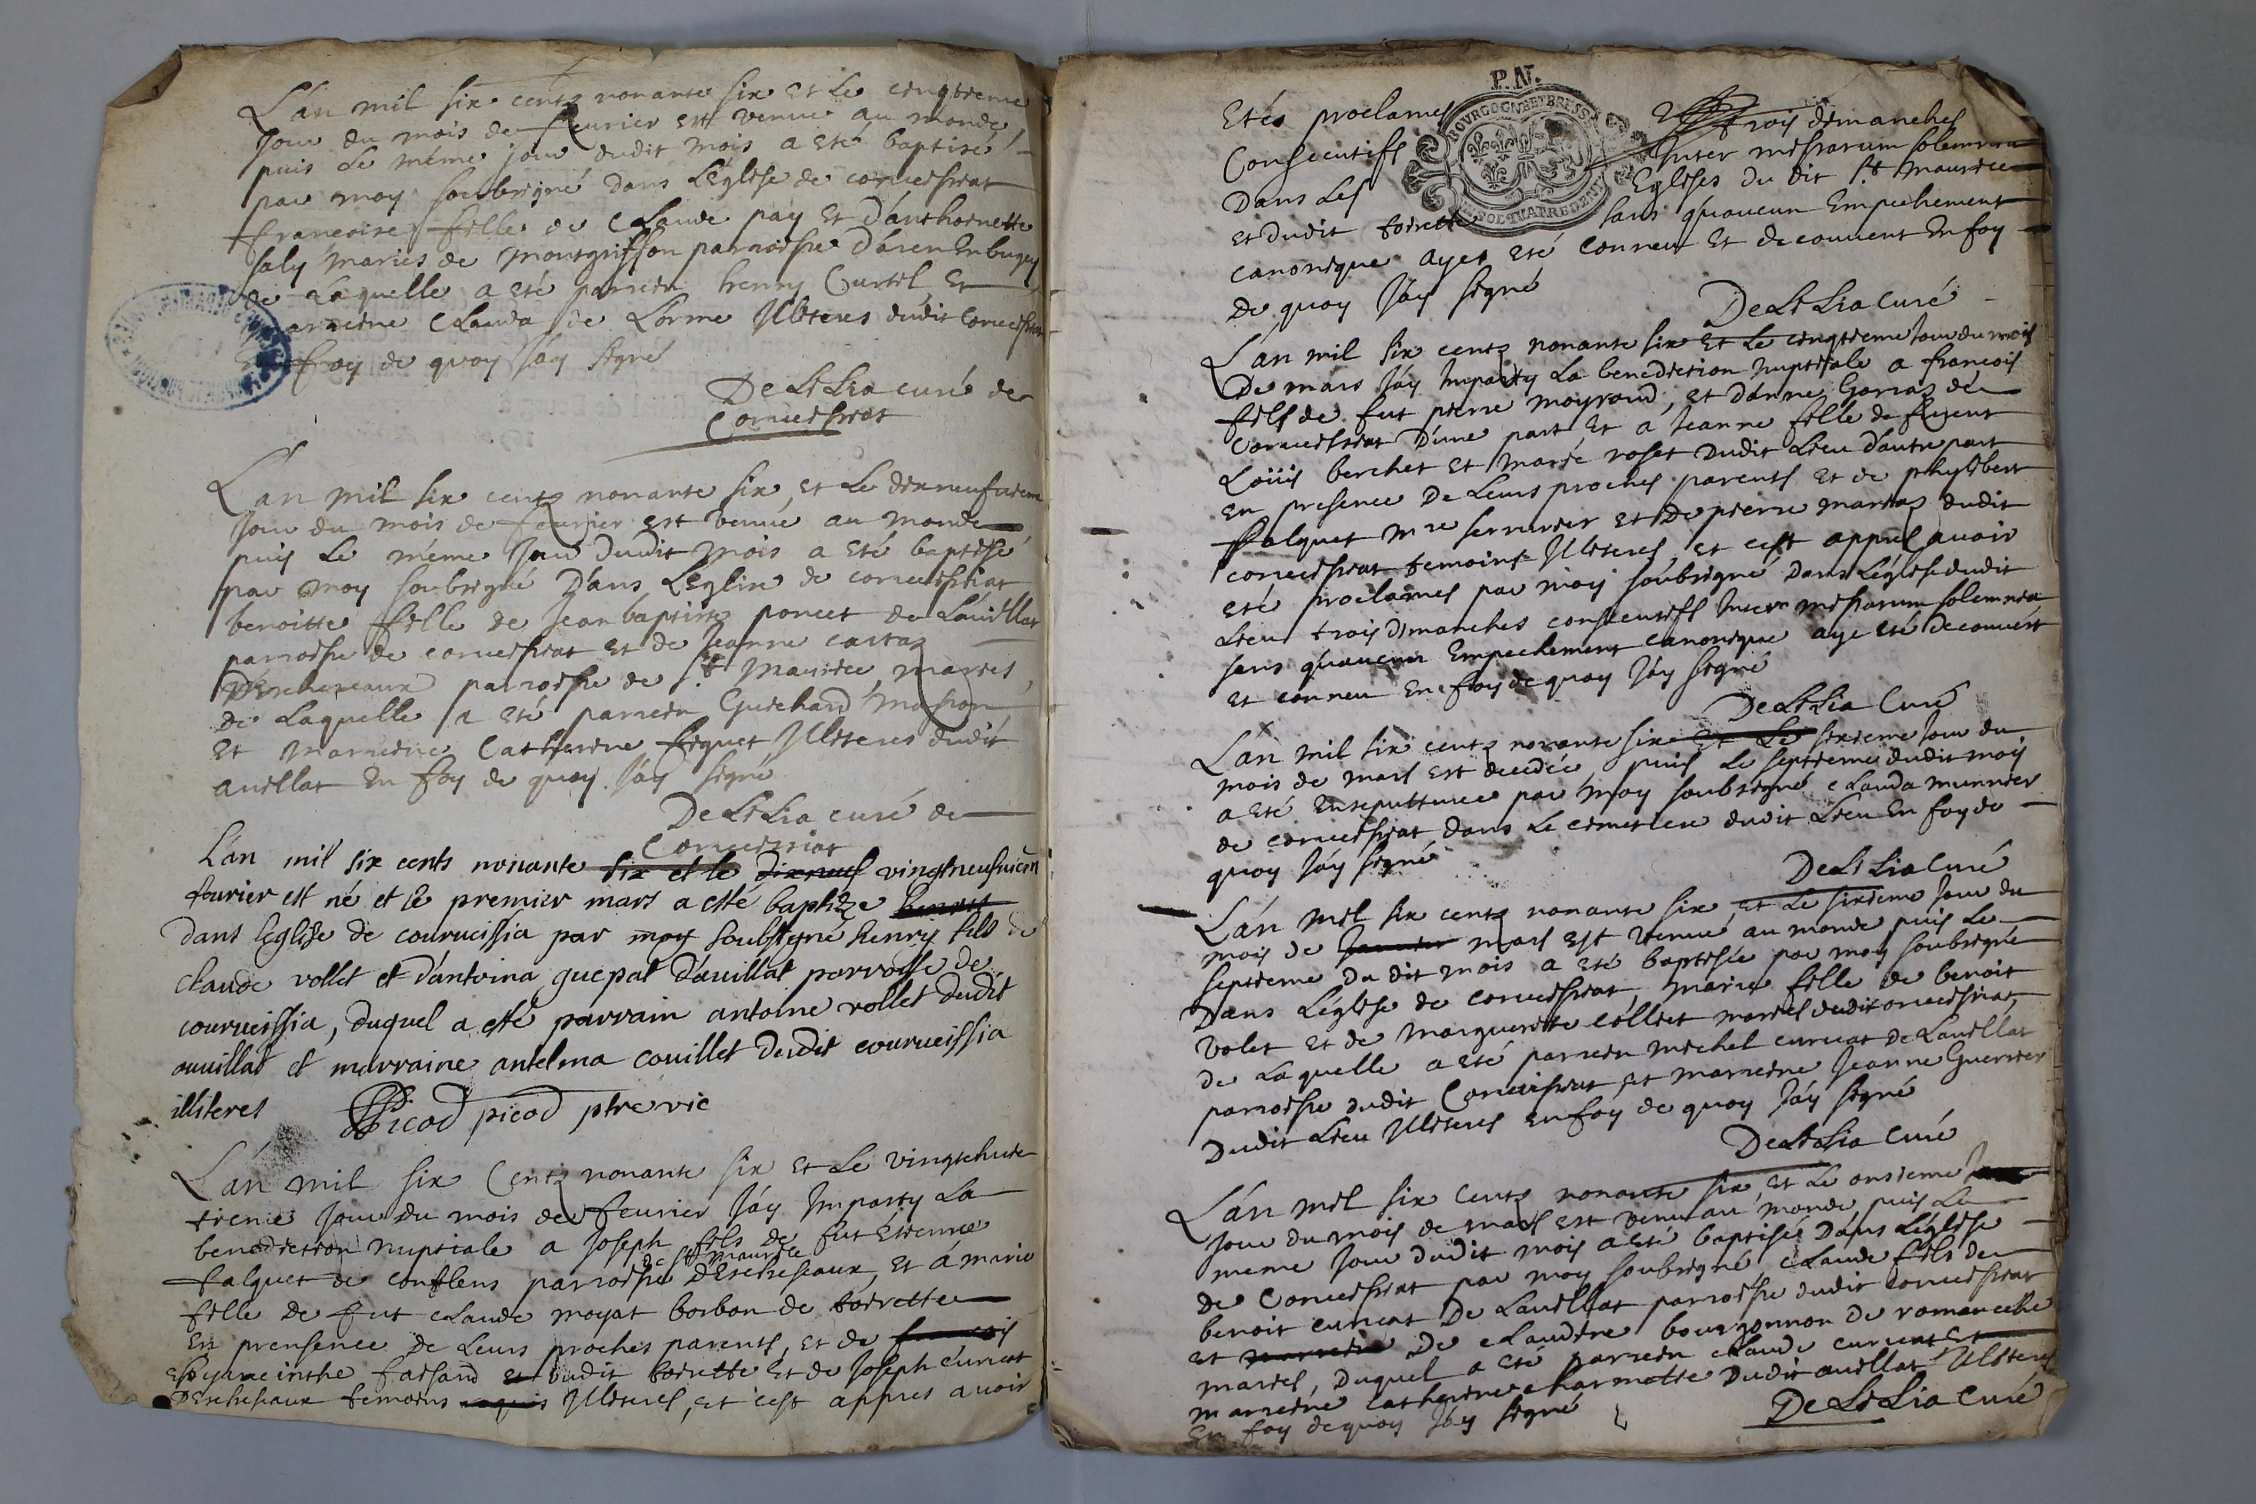 L'an mil six cents nonante six et le cinqtieme
Jour du mois de feurier est venue au monde
puis Le méme jour dudit mois a eté baptise
par moy soubsigné Dans L'Eglise de corueissiat
francoise fille de Claude pay et d'anthoinette
saly mariés de montgriffon parroisse d'aren En bugey
de Laquelle a eté parrein henry Curtil, Et
marreine Clauda de Lorme Illiteres dudit Corueissiat
En foy de quoy J'ay signé
De Lislia curé de
Corueissiat
L'an mil six cents nonante six, et Le dixneufuiem
Jour du mois de feurier est venüe au monde
puis Le méme Jour Dudit mois a eté baptisé
par moy soubsigné Dans L'Eglise de corueissiat
benoitte fille de Jean baptiste poncet de Lauillat
parroisse de corueissiat et de Jeanne cartaz
D'Escheseaux parroisse de St Maurice, mariés,
de Laquelle a eté parrein Guichard Masson
et Marreine Catherine fiquet Illiteres dudit
auillat En foy de quoy J'ay signé
De Lislia curé de
Corueissiat
L'an mil six cents nonante six et le dixneuf vingtneufuiem
feurier est né et le premier mars a esté baptize
dans l'eglize de courueissia par moy soubsigné henry fils de
claude vollet et d'antoina guepat d'auillat parroisse de
courueissia, duquel a esté parrain antoine vollet dudit
auuillat et marraine antelma couillet dudit courueissia
illiteres Picod picod ptre vic
L'an mil six Cents nonante six et Le vingtehuit
tieme Jour du mois de feurier J'ay Imparty La
benediction nuptiale a Joseph fils de fut Etienne
de St Maurice
falquet de conflens parroisse D'Escheseaux, et a marie
fille de fut claude moyat borbon de toirette
En prensence De Leurs proches parents, et de francois
Hyacinthe faisand et dudit toirette Et de Joseph Curuat
D'Escheseaux temoins Illiteres, et c'est appres auoir
P.N.
Etés proclames trois dimanches
Consecutifs Inter missarum solemnia
Dans Les Eglises du dit St Maurice
et dudit toirette sans qu'aucun Empechement
canonique ayes eté conneu et decouuent En foy
de quoy J'ay signé
De Lislia Curé
L'an mil six cents nonante six et Le cinqtieme Jour du mois
De mars J'ay Imparty La benediction nuptiale a francois
fils de fut pierre moyrand, et d'anne Gorraz de
Corueissiat D'une part Et a Jeanne fille de fuent
Loüis berchet et Marie roset Dudit Lieu d'autre part
En presence De Leurs proches parents Et de phylibert
falquet Mre serrurier Et De pierre martaz dudit
corueissiat temoins Illiteres et c'est appres auoir
eté proclames par moy soubsigné Dans L'église dudit
Lieu trois Dimanches consecutifs Inter missarum solemnia
sans qu'aucun Empechement canonique aye eté decouuert
et conneu En foy de quoy J'ay signé
De Lislia Curé
L'an mil six cents nonante six et Le sixieme Jour du
mois de mars est decedée puis Le septieme dudit mois
a eté Ensepulturée par moy soubsigné Clauda munnier
de corueissiat Dans Le cimetiere dudit Lieu En foy de
quoy J'ay signé
De Lislia Curé
L'an mil six cents nonante six, et Le sixieme Jour du
mois de Januier mars est venue au monde puis Le
septieme du dit mois a eté baptisée par moy soubsigné
Dans L'église de corueissiat, marie fille de benoit
Volet et de marguerite colliet mariés dudit corueissiat,
de Laquelle a eté parrein michel curuat de Lauillat
parroisse dudit Corueissiat et marreine Jeanne Guerrier
Dudit Lieu Illiteres En foy de quoy J'ay signé
De Lislia Curé
L'an mil six Cents nonante six, et Le onsieme
Jour du mois de mars est venu au monde, puis Le
méme Jour dudit mois a eté baptisé Dans L'église
de Corueissiat par moy soubsigné Claude fils de
benoit curuat De Lauilliat parroisse dudit corueissiat
et marreine De Claudine bourgonnon de romaneche
mariés, Duquel a eté parrein claude curuat et
marreine catherine charmotte Dudit auillat Illiteres
En foy de quoy J'ay signé
De Lislia Curé